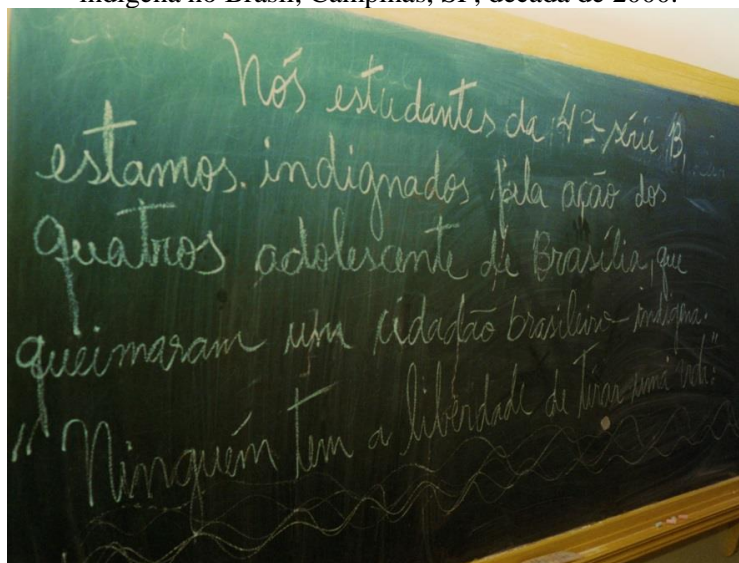 indígena no Brasil, Campinas, SP, década de 2000.
Nós estudantes da 4ª série B,
estamos. indignados pela ação dos
quatros adolescente de Brasília, que
queimaram um cidadão brasileiro-indígena.
"Ninguém tem a liberdade de tirar uma vida."